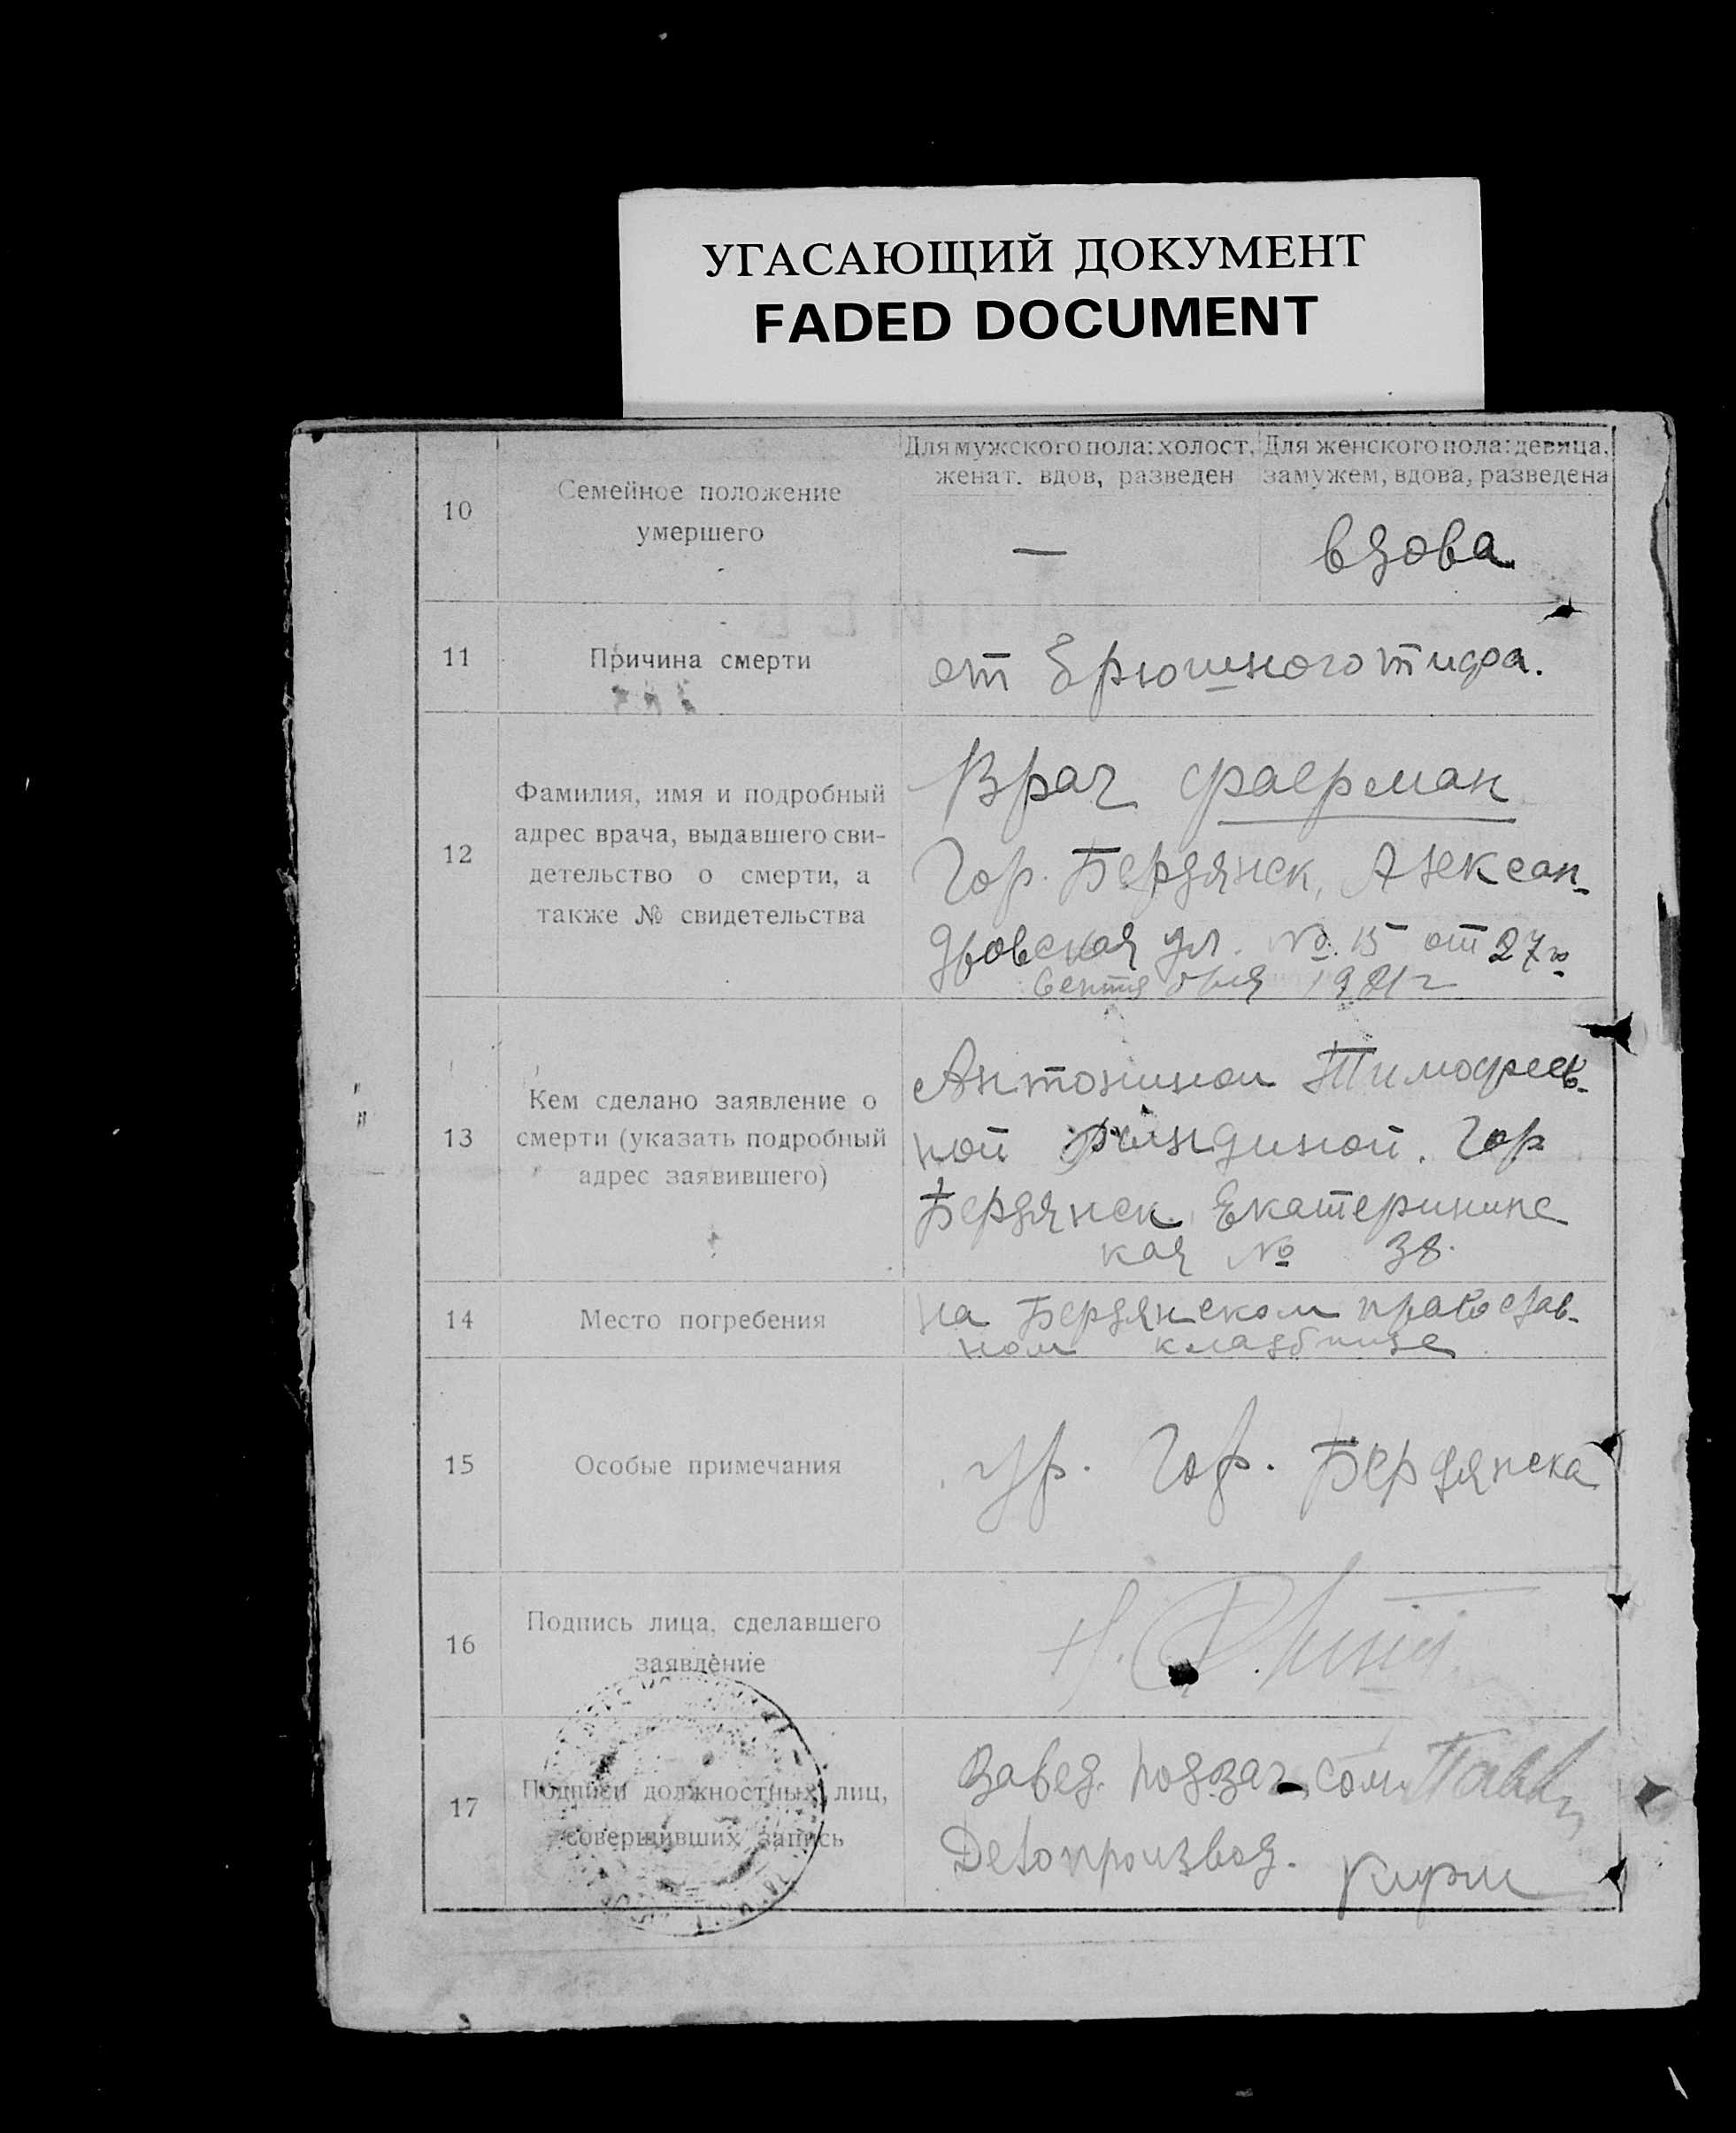 УГАСАЮЩИЙ ДОКУМЕНТ
FADED DOCUMENT
10
Семейное положение
умершего
Для мужского пола: холост,
женат. вдов, разведен
Для женского пола: девица,
замужем, вдова, разведена
—
вдова
11
Причина смерти
от брюшного тифа.
12
Фамилия, имя и подробный
адрес врача, выдавшего сви-
детельство о смерти, а
также № свидетельства
Врач Фаерман
Гор. Бердянск, Алексан-
дровская ул. № 15 от 27го
Сентября 1921г
13
Кем сделано заявление о
смерти (указать подробный
адрес заявившего)
Антониной Тимофеев-
ной Гор
Бердянск. Екатерининс
кая № 38.
14
Место погребения
на Бердянском православ-
ном кладбище
15
Особые примечания
ур. Гор. Бердянска
16
Подпись лица, сделавшего
заявление
17
Подписи должностных лиц,
совершивших запись
Завед. подзаг
Делопроизвод.